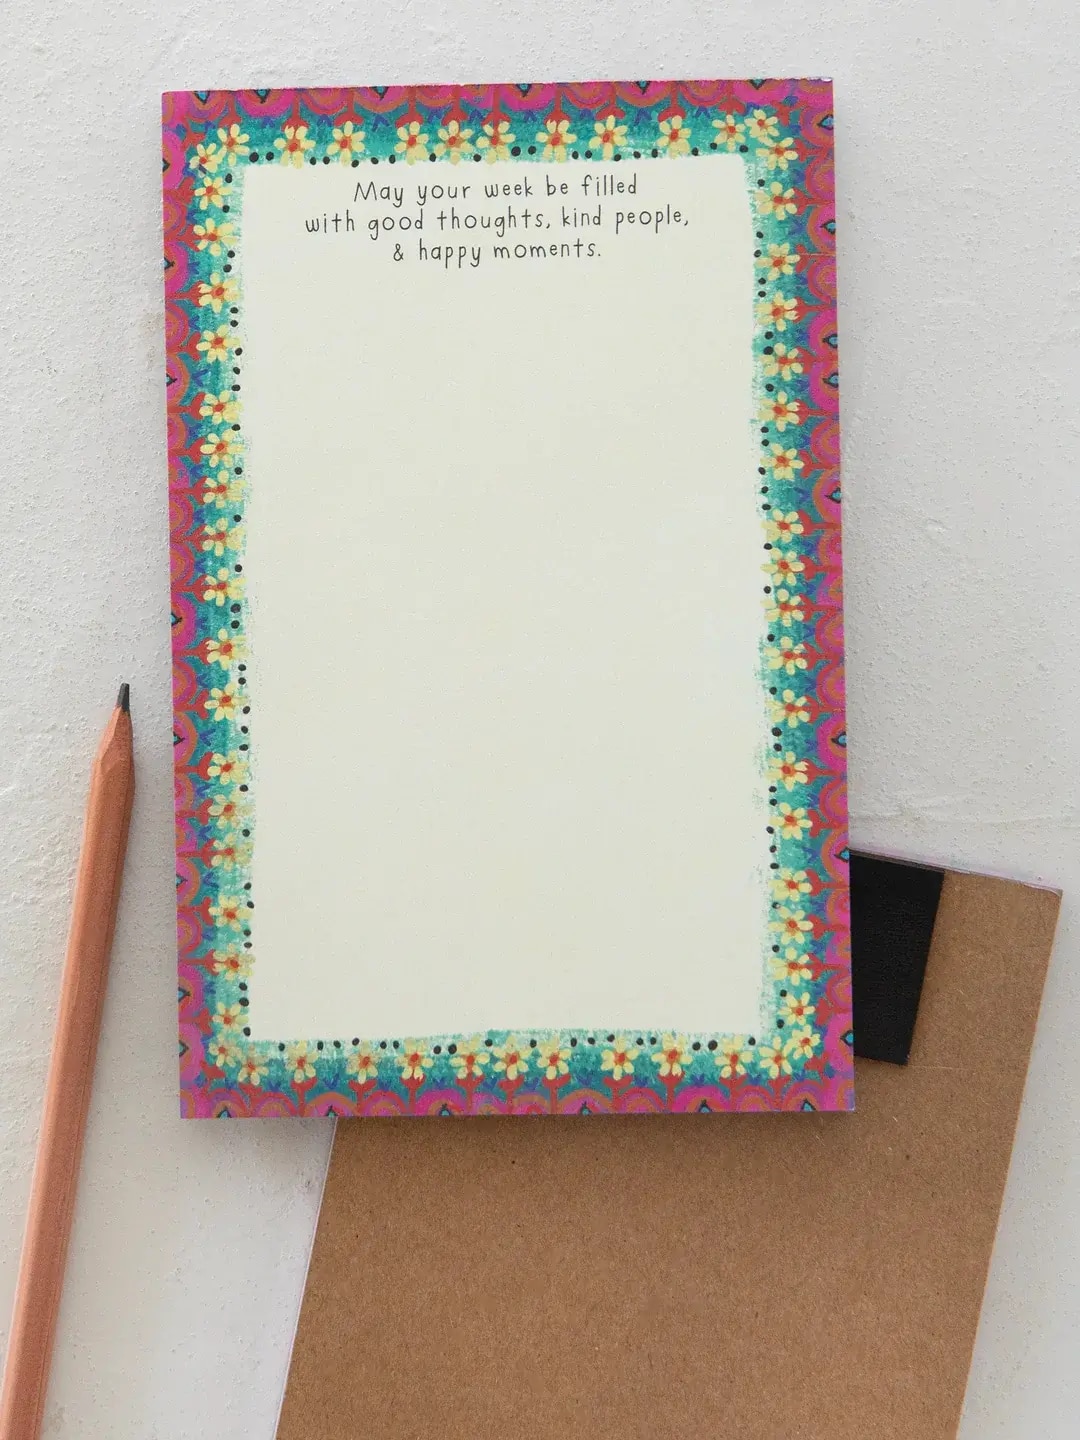 May your week be filled
with good thoughts, kind people,
& happy moments.